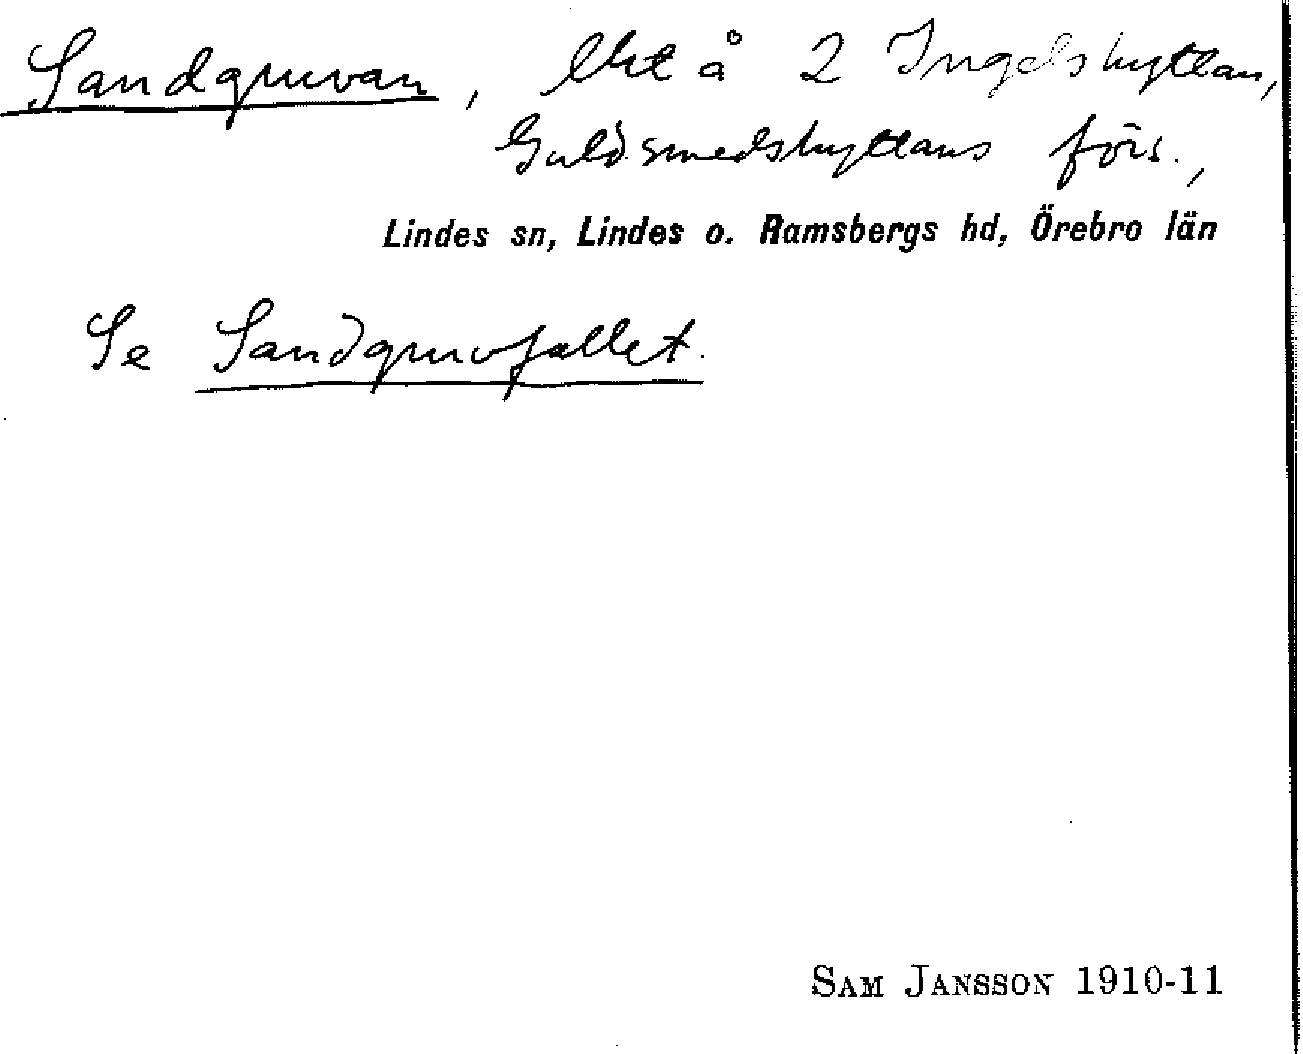 Sandgruvan, lht å 2 Ingelshyttan,
Guldsmedshyttans förs.,
Lindes sn, Lindes o. Ramsbergs hd, Örebro län
Se Sandgruvfallet.
SAM JANSSON 1910-11